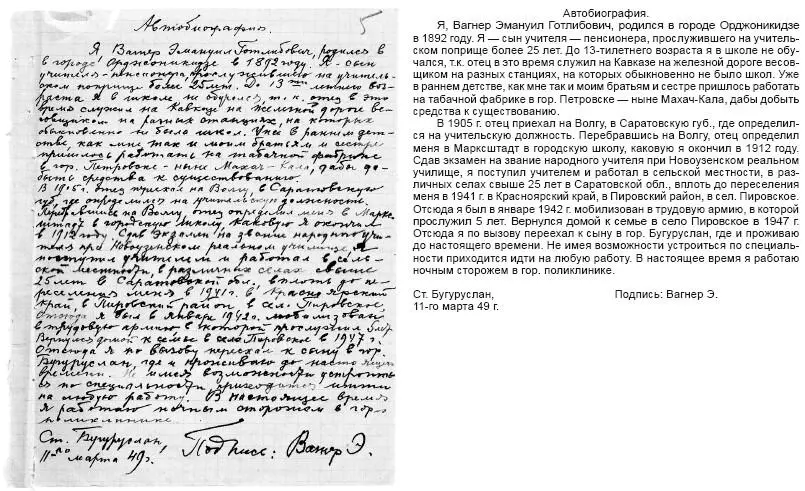 Автобиография. 5
Я Вагнер Эмануил Готлибович, родился в
в городе Орджоникидзе в 1892 году. Я - сын
учителя - пенсионера, прослужившего на учитель-
ском поприще более 25 лет. До 13 тилетнего возраста
раста я в школе не обучался, т. к. отец в это
время служил на Кавказе на железной дороге ве-
совщиком на разных станциях, на которых
обыкновенно не было школ. Уже в раннем дет-
стве, как мне так и моим братьям и сестре
пришлось работать на табачной фабрике
в гор. Петровске - ныне Махач-Кала, дабы до-
быть средства к существованию.
В 1905 г. отец приехал на Волгу, в Саратовскую
губ., где определился на учительскую должность.
Перебравшись на Волгу, отец определил меня в Маркс-
штадт в городскую школу, каковую я окончил
в 1912 году. Сдав экзамен на звание народного учи-
теля при Новоузенском реальном училище, я
поступил учителем и работал в сель-
ской местности, в различных селах свыше
25 лет в Саратовской обл., вплоть до пе-
реселения меня в 1941 г. в Красноярский
край, в Пировский район в сел. Пировское.
Отсюда я был в январе 1942 г. мобилизован
в трудовую армию в которой прослужил 5 лет
Вернулся домой к семье в село Пировское в 1947 г.
Отсюда я по вызову переехал к сыну в гор.
Бугуруслан, где и проживаю до настоящего
времени. Не имея возможности устроить-
ся по специальности, приходится итти
на любую работу. В настоящее время
я работаю ночным сторожем в гор-
поликлинике.
Ст. Бугуруслан,
11-го марта 49 г. Подпись: Вагнер Э.
Автобиография.
Я, Вагнер Эмануил Готлибович, родился в городе Орджоникидзе
в 1892 году. Я — сын учителя — пенсионера, прослужившего на учитель-
ском поприще более 25 лет. До 13-тилетнего возраста я в школе не обу-
чался, т.к. отец в это время служил на Кавказе на железной дороге весов-
щиком на разных станциях, на которых обыкновенно не было школ. Уже
в раннем детстве, как мне так и моим братьям и сестре пришлось работать
на табачной фабрике в гор. Петровске — ныне Махач-Кала, дабы добыть
средства к существованию.
В 1905 г. отец приехал на Волгу, в Саратовскую губ., где определил-
ся на учительскую должность. Перебравшись на Волгу, отец определил
меня в Марксштадт в городскую школу, каковую я окончил в 1912 году.
Сдав экзамен на звание народного учителя при Новоузенском реальном
училище, я поступил учителем и работал в сельской местности, в раз-
личных селах свыше 25 лет в Саратовской обл., вплоть до переселения
меня в 1941 г. в Красноярский край, в Пировский район, в сел. Пировское.
Отсюда я был в январе 1942 г. мобилизован в трудовую армию, в которой
прослужил 5 лет. Вернулся домой к семье в село Пировское в 1947 г.
Отсюда я по вызову переехал к сыну в гор. Бугуруслан, где и проживаю
до настоящего времени. Не имея возможности устроиться по специаль-
ности приходится идти на любую работу. В настоящее время я работаю
ночным сторожем в гор. поликлинике.
Ст. Бугуруслан, Подпись: Вагнер Э.
11-го марта 49 г.